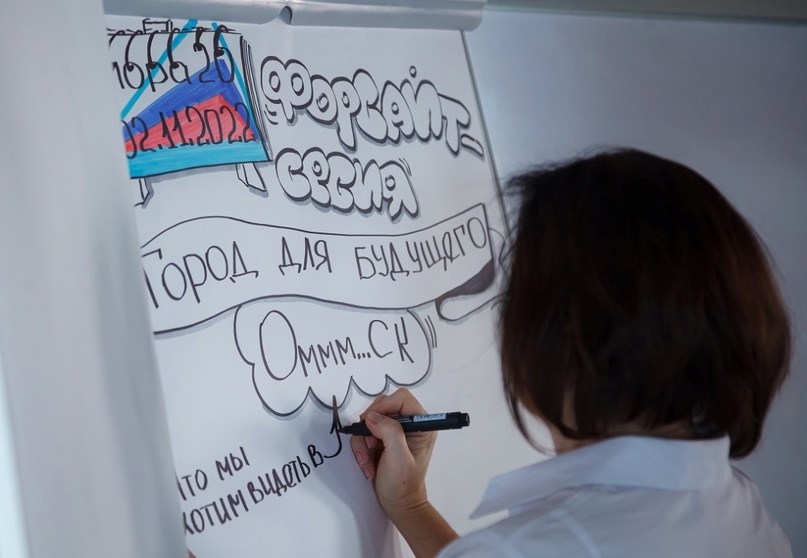 02.11.2022
Форсайт-
сесия
Город для будущего
Оммм...ск
что мы
хотим видеть в